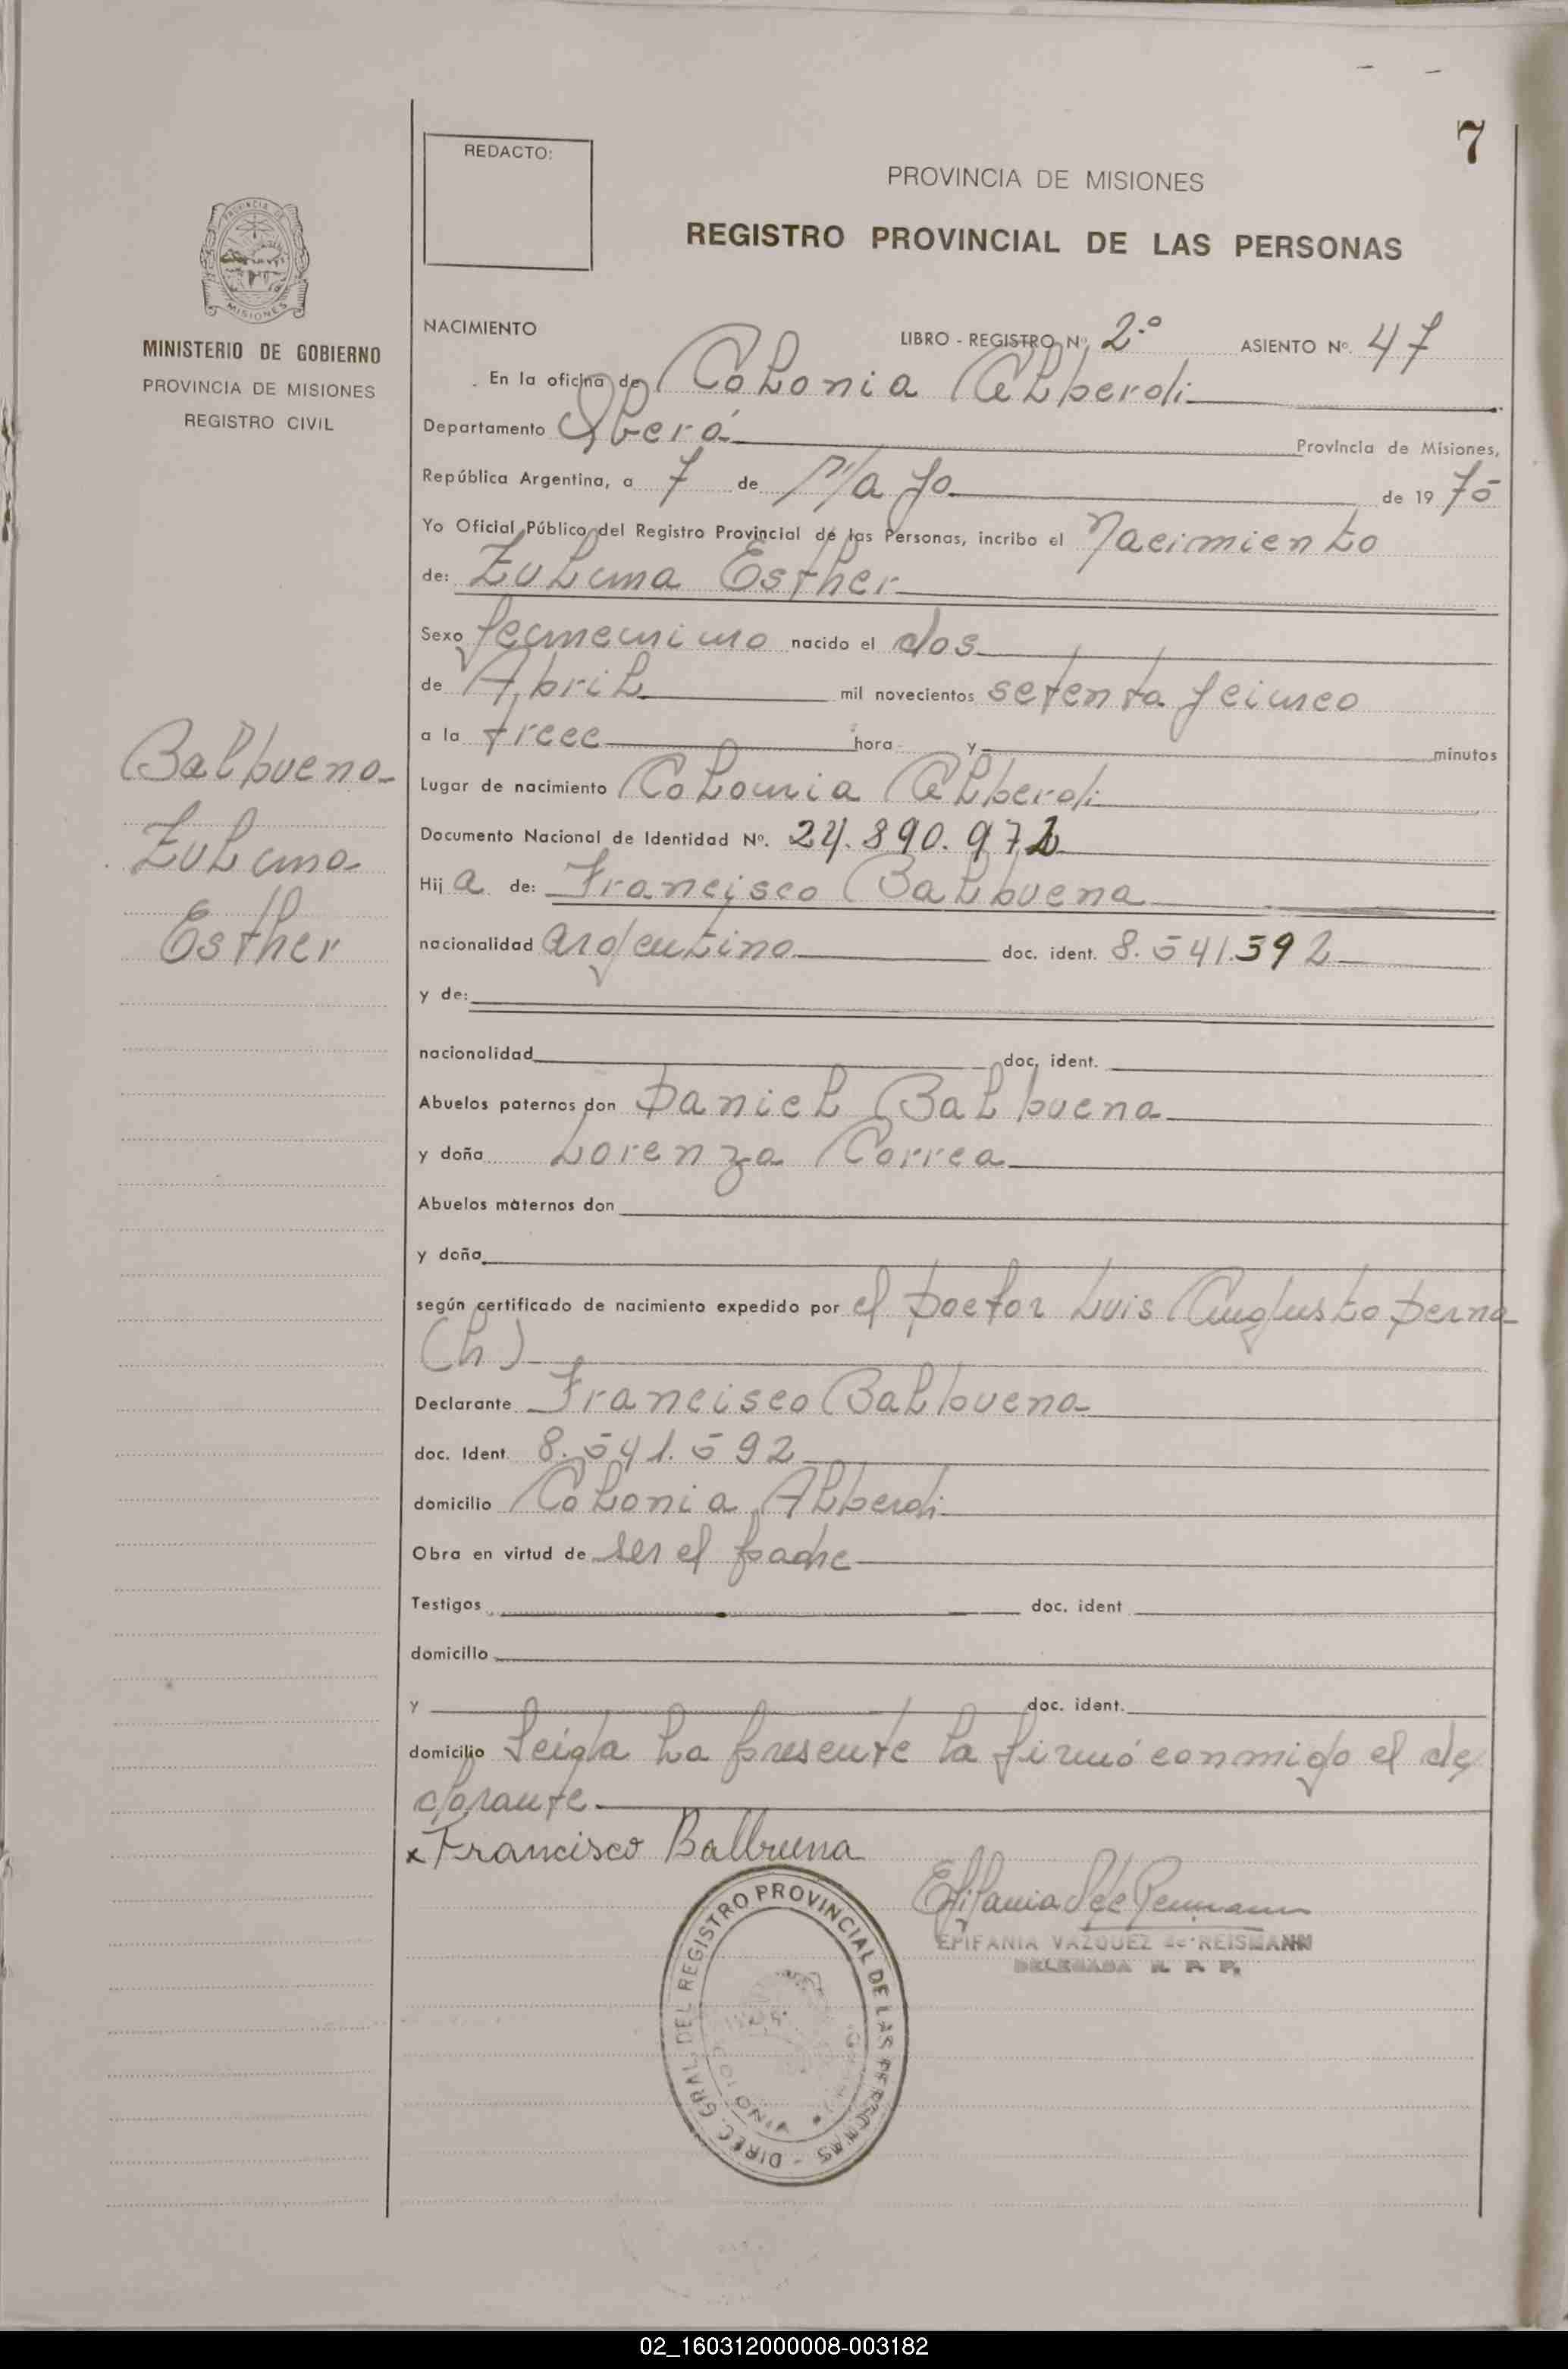 7
REDACTO:
PROVINCIA DE MISIONES
REGISTRO PROVINCIAL DE LAS PERSONAS
PROVINCIA DE
MISIONES
MINISTERIO DE GOBIERNO
PROVINCIA DE MISIONES
REGISTRO CIVIL
NACIMIENTO
LIBRO - REGISTRO Nº. 2.º ASIENTO Nº. 47
En la oficina de Colonia Alberdi
Departamento Oberá Provincia de Misiones,
República Argentina, a 7 de Mayo de 1975
Yo Oficial Público del Registro Provincial de las Personas, incribo el Nacimiento
de: Zulma Esther
Sexo femenino nacido el dos
de Abril mil novecientos setenta y cinco
a la trece hora y minutos
Lugar de nacimiento Colonia Alberdi
Documento Nacional de Identidad Nº. 24.890.972
Hija de: Francisco Balbuena
nacionalidad argentino doc. ident. 8.541.592
y de:
nacionalidad doc. ident.
Abuelos paternos don Daniel Balbuena
y doña Lorenza Correa
Abuelos maternos don
y doña
según certificado de nacimiento expedido por el Doctor Luis Augusto Derna
(h)
Declarante Francisco Balbuena
doc. Ident. 8.541.592
domicilio Colonia Alberdi
Obra en virtud de ser el padre
Testigos doc. ident
domicilio
y doc. ident.
domicilio Leída la presente la firmó conmigo el de
clarante.
x Francisco Balbuena
Balbuena
Zulma
Esther
EPIFANIA VAZQUEZ de REISMANN
DELEGADA R. P. P.
DIREC. GRAL. DEL REGISTRO PROVINCIAL DE LAS PERSONAS -
02_160312000008-003182